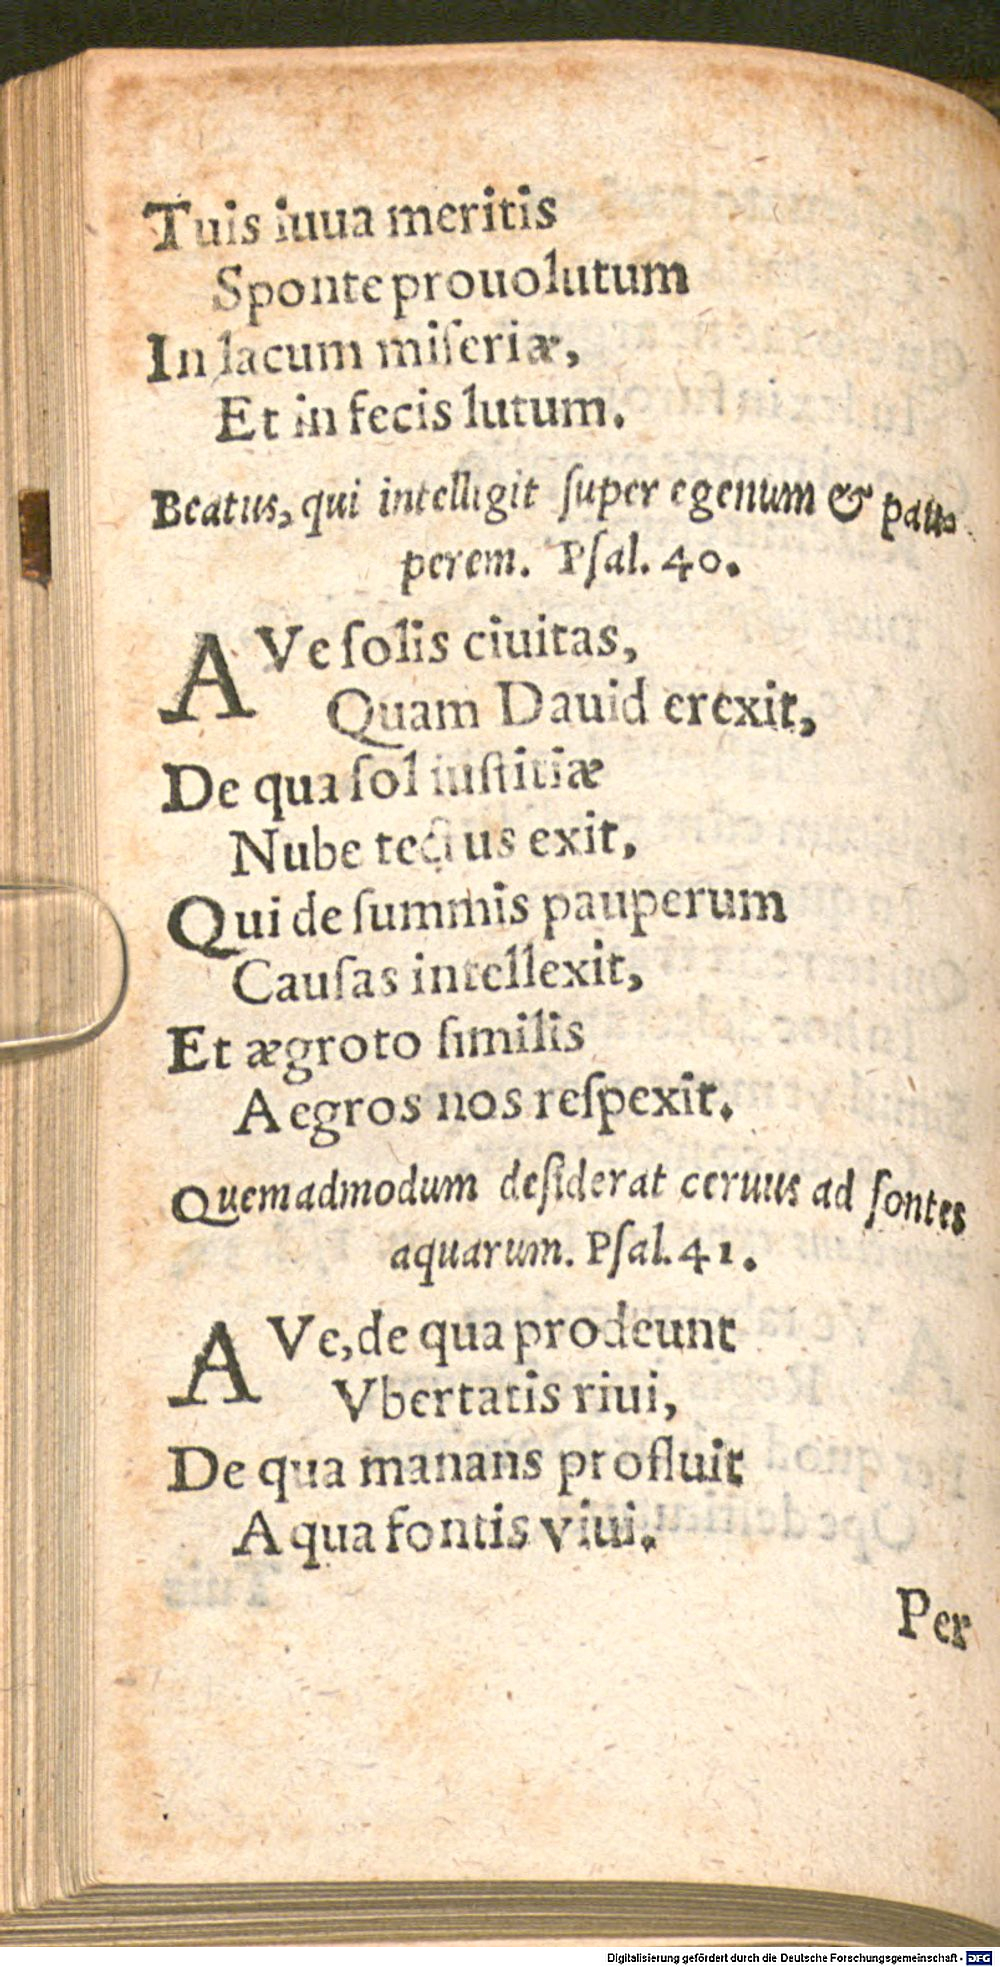 Tuis iuua meritis
Sponte prouolutum
In lacum miſeriæ,
Et in fecis lutum.
Beatus, qui intelligit ſuper egenum & pau-
perem. Pſal. 40.
AVe ſolis ciuitas,
Quam Dauid erexit,
De qua ſol iuſtitiæ
Nube tectus exit,
Qui de ſummis pauperum
Cauſas intellexit,
Et ægroto ſimilis
Aegros nos reſpexit.
Quemadmodum deſiderat ceruus ad fontes
aquarum. Pſal. 41.
AVe, de qua prodeunt
Vbertatis riui,
De qua manans profluit
Aqua fontis viui.
Per
Digitalisierung gefördert durch die Deutsche Forschungsgemeinschaft - DFG